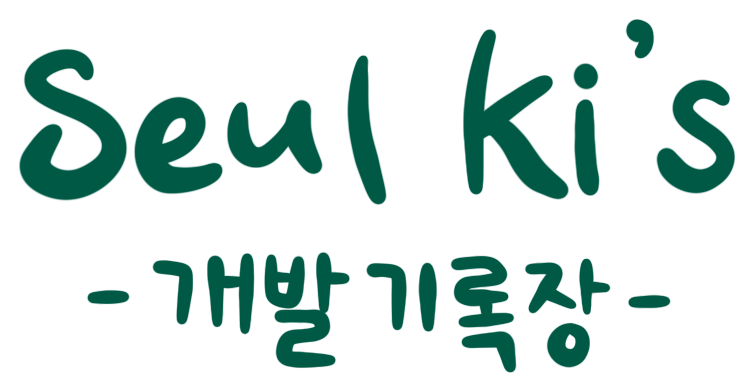 Seul ki's
- 개발 기록장 -